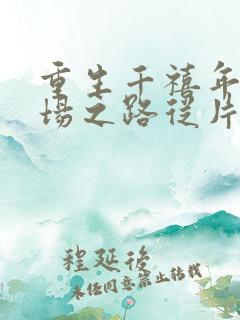 重生千禧年
場之路從片
程延後
未经同意禁止转载